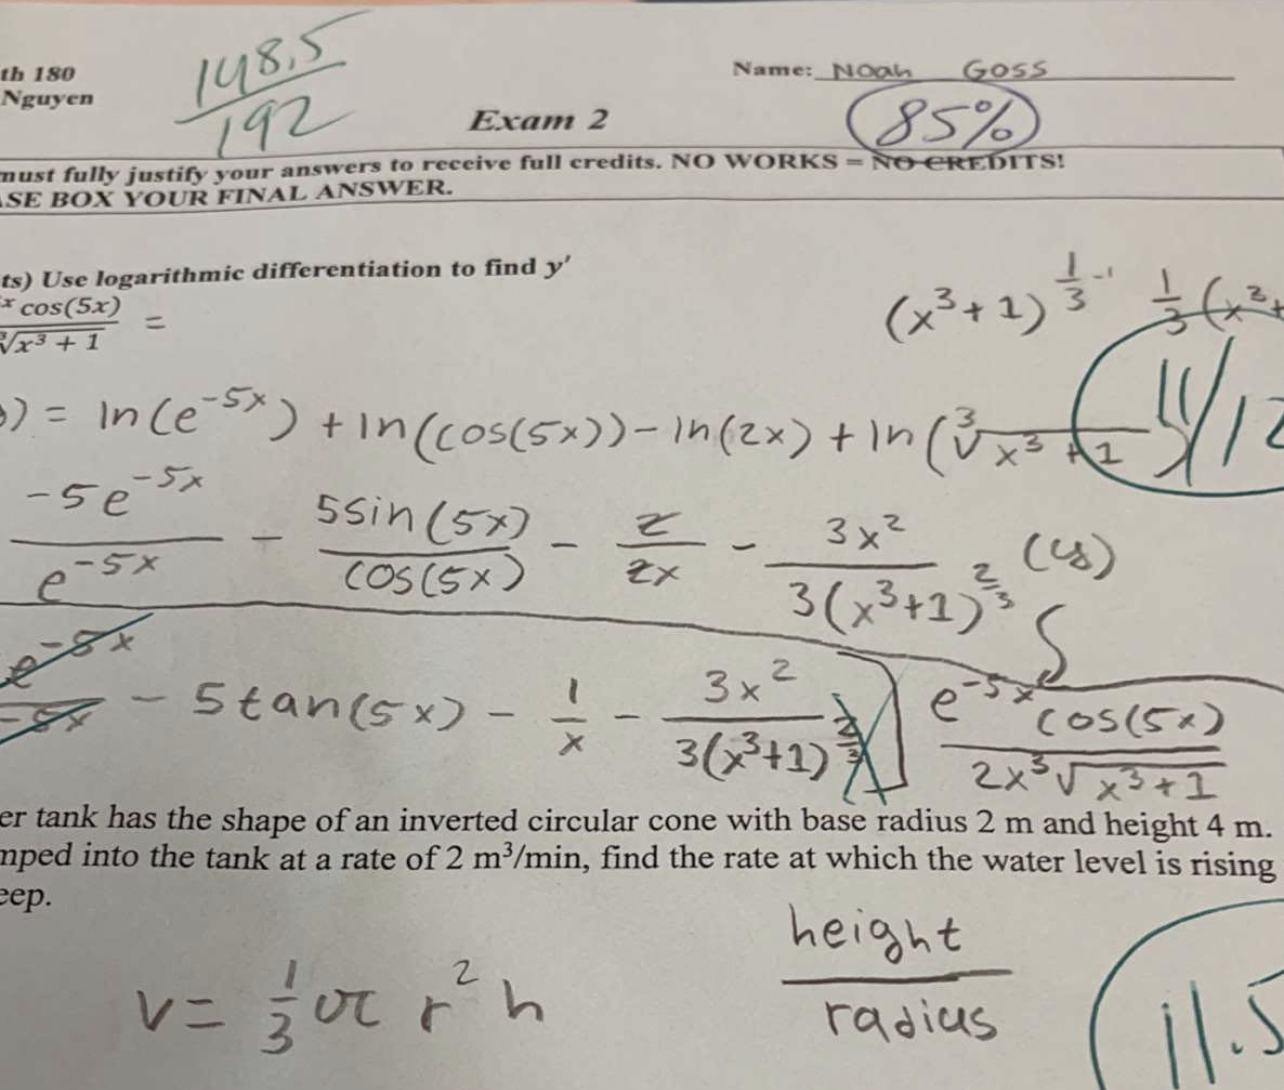 th 180
Nguyen
148.5/192
Name: Noah Goss
85%
Exam 2
must fully justify your answers to receive full credits. NO WORKS = NO CREDITS!
SE BOX YOUR FINAL ANSWER.
ts) Use logarithmic differentiation to find y'
x cos(5x) / ∛(x³ + 1) =
(x³+1)^(1/3 -1) 1/3(x³+
11/12
) = ln(e^(-5x)) + ln(cos(5x)) - ln(2x) + ln(∛(x³+1))
-5e^(-5x)/e^(-5x) - 5sin(5x)/cos(5x) - 2/2x - 3x²/3(x³+1)^(2/3) (y)
e^(-5x)/-5x - 5tan(5x) - 1/x - 3x²/3(x³+1)^(2/3) ] e^(-5x) cos(5x)/2x ∛(x³+1)
er tank has the shape of an inverted circular cone with base radius 2 m and height 4 m.
mped into the tank at a rate of 2 m³/min, find the rate at which the water level is rising
eep.
V = 1/3 π r² h
height/radius
11.5